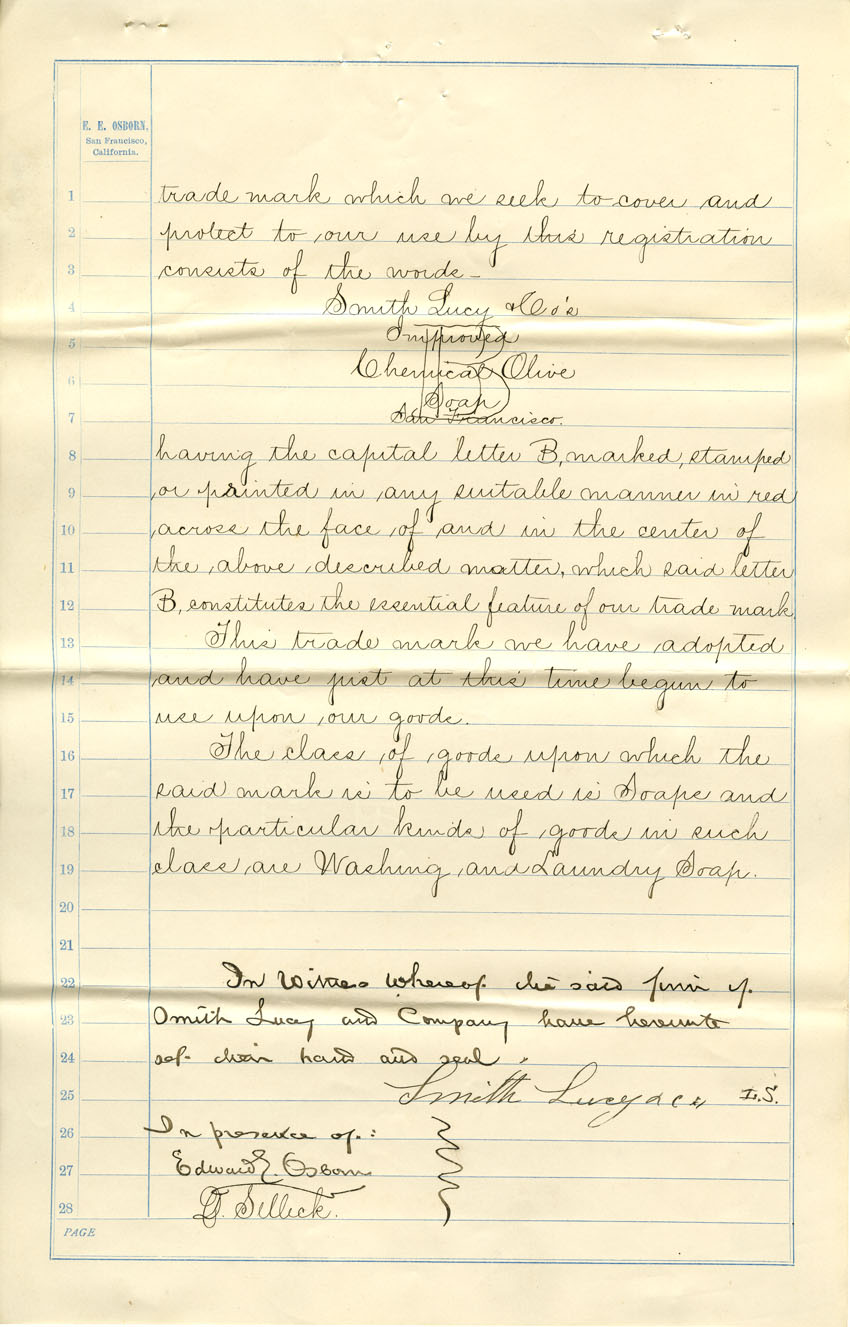 E. E. OSBORN,
San Francisco,
California.
1 trade mark which we seek to cover and
2 protect to our use by this registration
3 consists of the words –
4 Smith Lucy & Co's
5 Improved
6 Chemical Olive
Soap
7 San Francisco.
B
8 having the capital letter B, marked, stamped
9 or printed in any suitable manner in red
10 across the face of and in the center of
11 the above described matter, which said letter
12 B, constitutes the essential feature of our trade mark.
13 This trade mark we have adopted
14 and have just at this time begun to
15 use upon our goods.
16 The class of goods upon which the
17 said mark is to be used is Soaps and
18 the particular kinds of goods in such
19 class are Washing and Laundry Soap.
20
21
22 In Witness Whereof the said firm of
23 Smith Lucy and Company have hereunto
24 set their hand and seal.
25 Smith Lucy & Co L.S.
26 In presence of:
27 Edward E. Osborn
28 D. Selleck.
PAGE